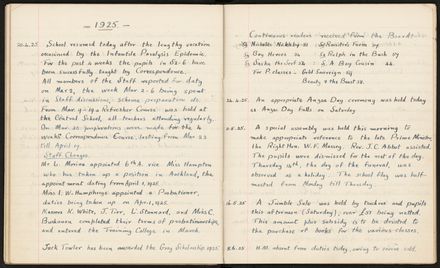 — 1925 —
20.4.25 School resumed today after the lengthy vacation
occasioned by the Infantile Paralysis Epidemic.
For the past 6 weeks the pupils in S2-6 have
been successfully taught by Correspondence.
All members of the Staff reported for duty
on Mar 2, the week Mar 2-6 being spent
in Staff discussions, Scheme preparation etc.
From Mar 9-19 a Refresher Course was held at
the Central School, all teachers attending regularly.
On Mar 20 preparations were made for the 4
weeks Correspondence Course, lasting from Mar 23
till April 17.
Staff Changes.
Mr L. Morine appointed 6th A. vice Miss Hampton
who has taken up a position in Auckland, the
appointment dating from April 1, 1925.
Miss I. W. Humphreys appointed a Probationer,
duties being taken up on Apr. 1, 1925.
Karena K. White, J. Tier, L. Stannard, and Miss C.
Buchanan completed their terms of probationership
and entered the Training College in March.
Jack Towler has been awarded the Gray Scholarship 1925.
Continuous readers received from the Board:-
S6 Nicholas Nickleby S5 Ranching Farm
S4 Boy Heroes S3 Ralph in the Bush
S2 S1 A Bay Cousin
For P classes:- Gold Sovereign
Beauty & the Beast
24.4.25 An appropriate Anzac Day ceremony was held today
as Anzac Day falls on Saturday
A special assembly was held this morning to
make appropriate reference to the late Prime Minister
the Right Hon. W. F. Massey. Rev. J. C. Abbot assisted.
The pupils were dismissed for the rest of the day.
Thursday 14th, the day of the funeral, was
observed as a holiday. The school flag was half-
masted from Monday till Thursday
16.5.25 A Jumble Sale was held by teachers and pupils
this afternoon (Saturday); over £20 being netted.
This amount plus subsidy is to be devoted to
the purchase of books for the various classes.
H.M. absent from duties today, owing to